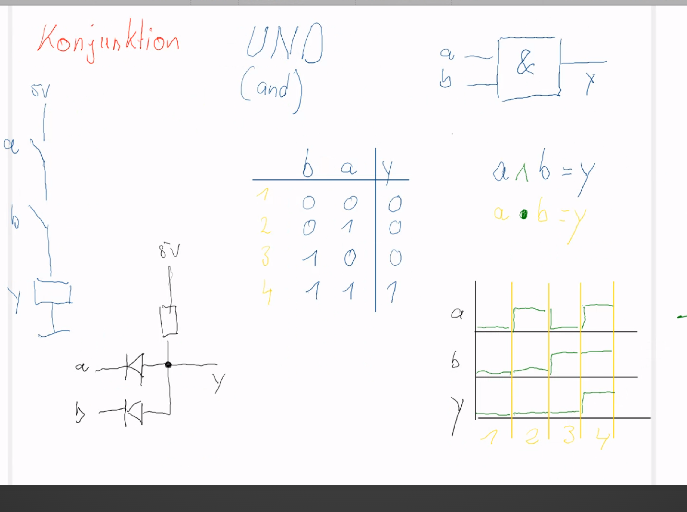 Konjunktion
UND
(and)
a
b
&
y
5V
a
b
y
b a y
1 0 0 0
2 0 1 0
3 1 0 0
4 1 1 1
a ∧ b = y
a • b = y
5V
a
b
y
a
b
y
1 2 3 4